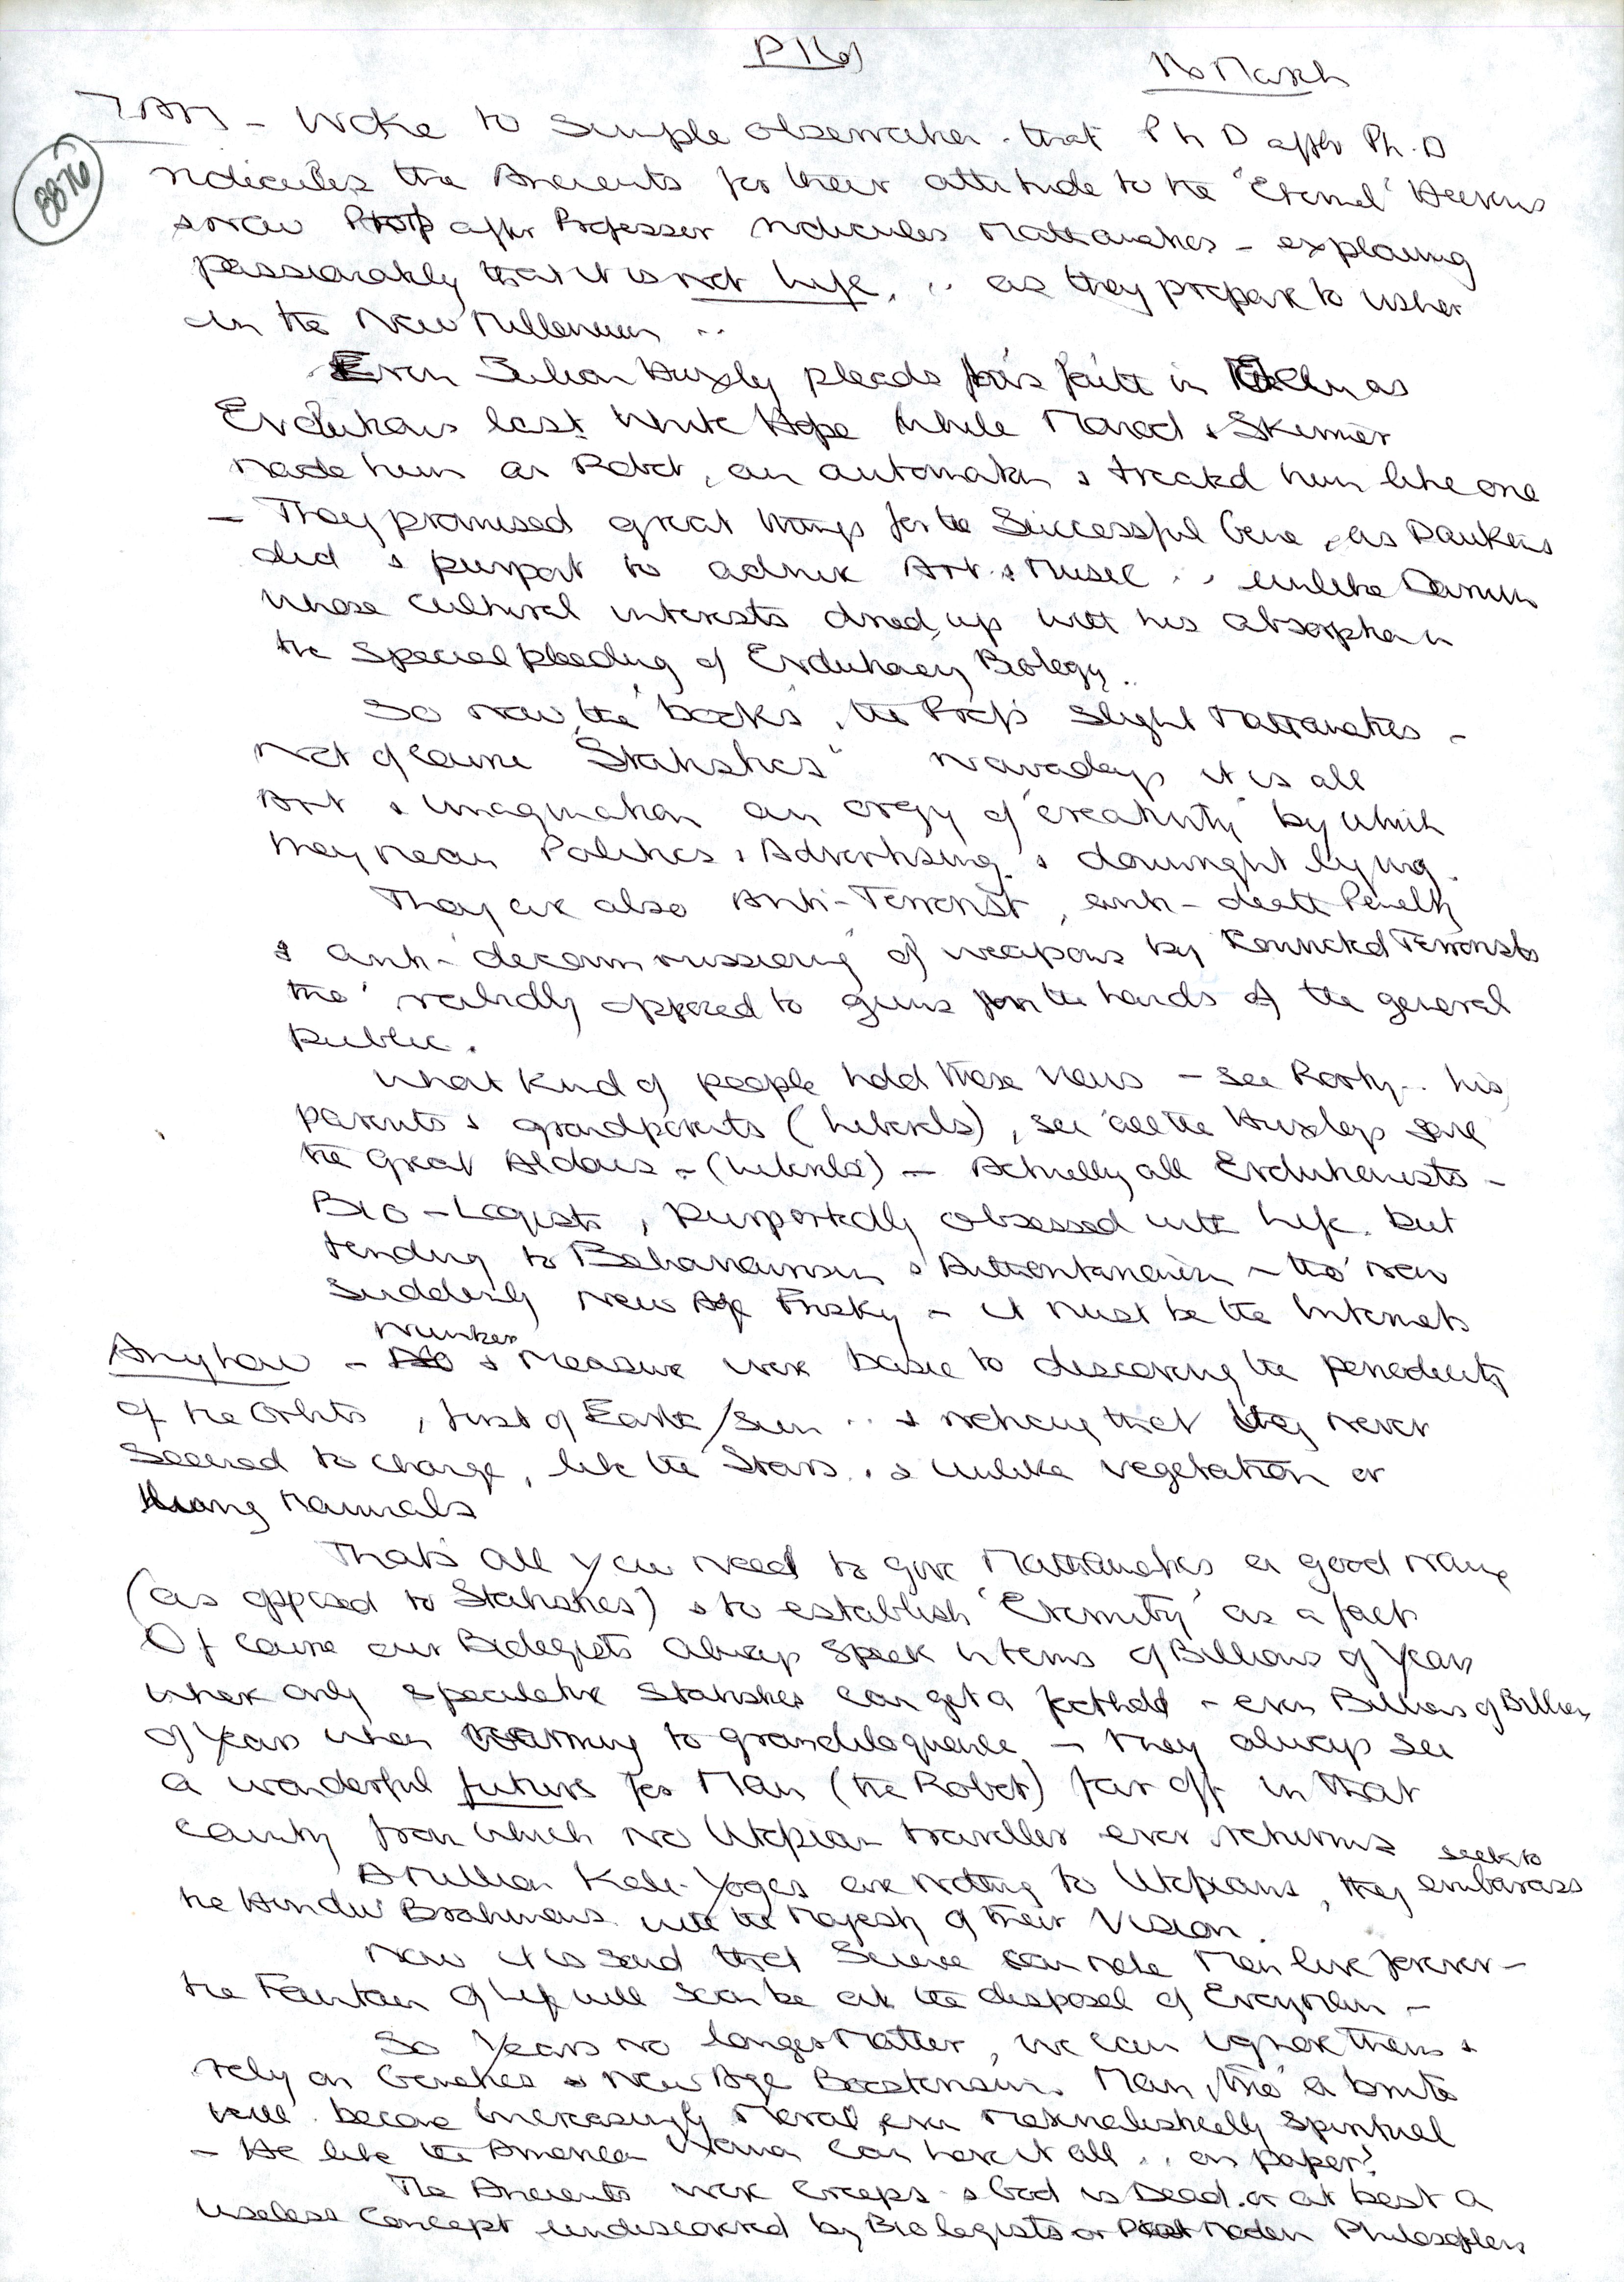 16 March
8876
7 AM - Woke to simple observation - that Ph D after Ph.D
ridicules the Ancients for their attitude to the 'Eternal' Heavens
& now Prof after Professor ridicules Mathematics - explaining
passionately that it is not Life, .. as they prepare to usher
in the New Millenium ..
Even Julian Huxley pleads for faith in Man as
Evolutions last White Hope while Monod & Skinner
made him a Robot, an automaton & treated him like one
- They promised great things for the Successful Gene, as Dawkins
did & purport to admire Art & Music .. unlike Darwin
whose cultural interests dried up with his absorption in
the Special pleading of Evolutionary Biology..
So now, the 'books', the Profs slight Mathematics -
Not of course "Statistics" nowadays it is all
Art & imagination an orgy of 'creativity' by which
they mean Politics, Advertising & downright lying.
They are also Anti-Terrorist, anti-death Penalty
& anti-'decommissioning' of weapons by Convicted Terrorists
tho' rabidly opposed to guns in the hands of the general
public.
What kind of people hold these views - see Rorty.. his
parents & grandparents (Liberals), see all the Huxleys save
the great Aldous - (Liberals) - Actually all Evolutionists -
Bio-Logists, purportedly obsessed with Life. but
tending to Behaviourism & Authoritarianism - tho' now
suddenly New Age Frisky - it must be the Internets
Number
Anyhow - & Measure were basic to discovering the periodicity
of the Orbits, first of Earth/Sun .. & noticing that they never
seemed to change, like the Stars .. & unlike vegetation or
living Mammals
That's all you need to give Mathematics a good name
(as opposed to Statistics) & to establish 'Eternity' as a fact
Of course our Biologists always speak in terms of Billions of Years
where only speculative Statistics can get a foothold - even Billions of Billions
of Years when warming to grandiloquence - they always see
a wonderful future for Man (the Robot) far off in that
Country from which no Utopian traveller ever returns
seek to
A Million Kali-Yogas are nothing to Utopians, they embarass
the Hindu Brahmans with the Majesty of their Vision.
Now it is said that Science can make Man live forever -
the Fountain of Life will soon be at the disposal of Everyman -
So Years no longer Matter, we can ignore them &
rely on Genetics & New Age Boosterism. Man, tho' a brute
will become increasingly Moral, even Materialistically Spiritual
- He like the American Woman can have it all .. on paper?
The Ancients were Creeps & God is Dead. or at best a
useless Concept undiscovered by Biologists or Post Modern Philosophers